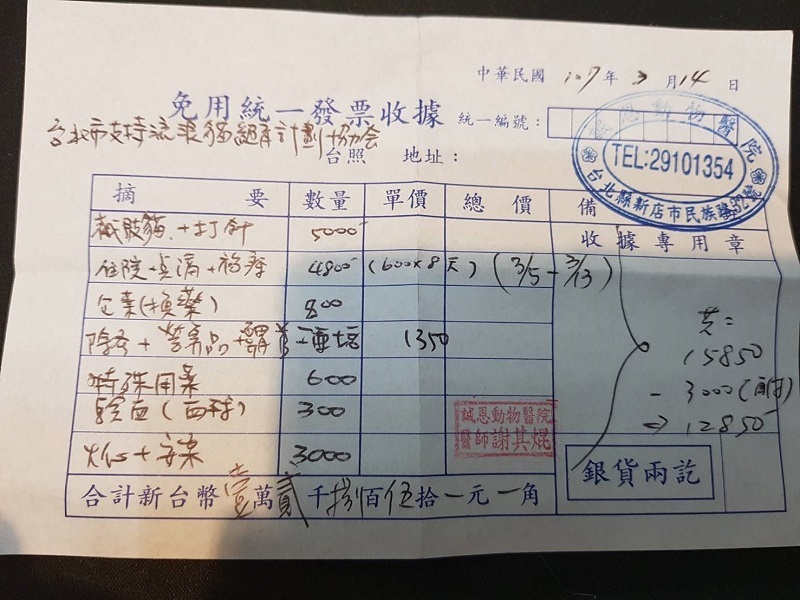 中華民國 107 年 3 月 14 日
免用統一發票收據 統一編號：
台北市支持流浪貓絕育計劃協會
台照 地址：
恩動物醫院
TEL:29101354
台北縣新店市民族路
摘要 數量 單價 總價 備
收據專用章
截肢貓 + 打針 5000
住院+點滴+ 4800 (600×8天) (3/5-3/13)
(換藥) 800
營養品 1350
特殊用藥 600
驗血( ) 300
3000
共=
15850
- 3000
⇒ 12850
誠恩動物醫院
醫師謝其焜
銀貨兩訖
合計新台幣壹萬貳千捌百伍拾一元一角